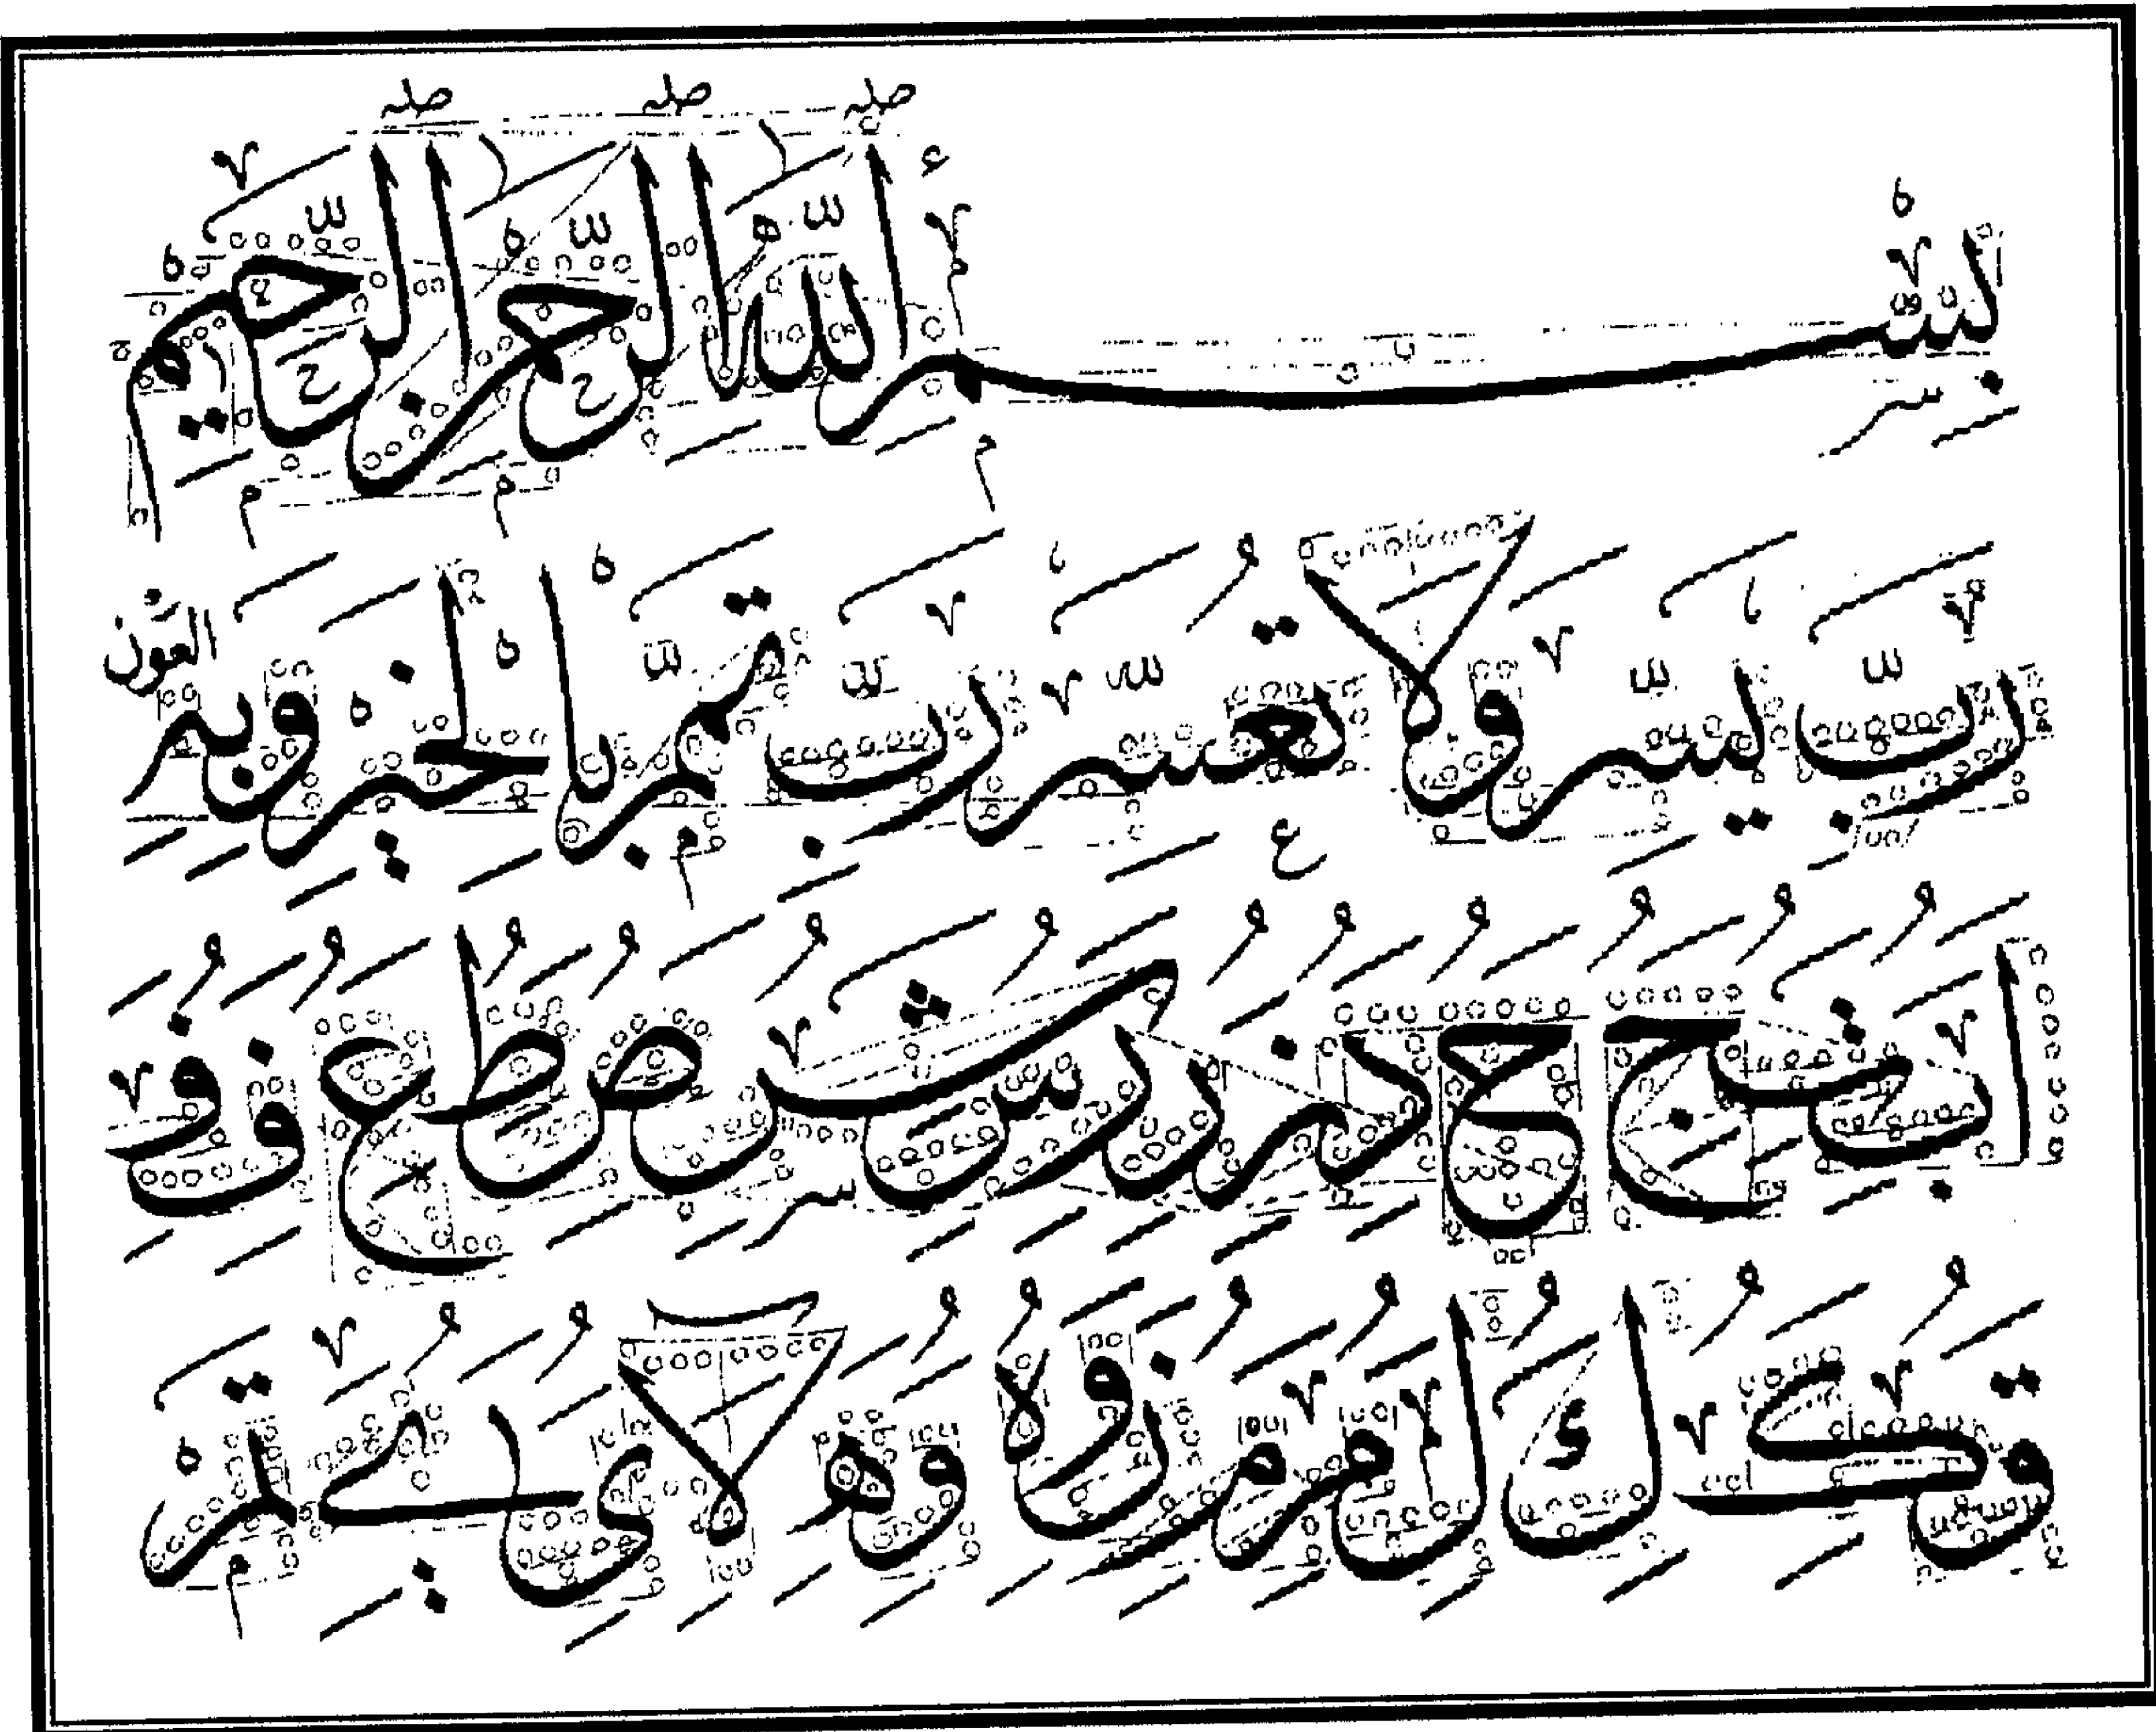 بسم الله الرحمن الرحيم
رب يسر ولا تعسر رب تمم بالخير وبه العون
ا ب ث ج ح د ذ ر ز س ش ص ط ع ف ف
ق ك ك ل م م ن و ه و ه لا ى ے تم